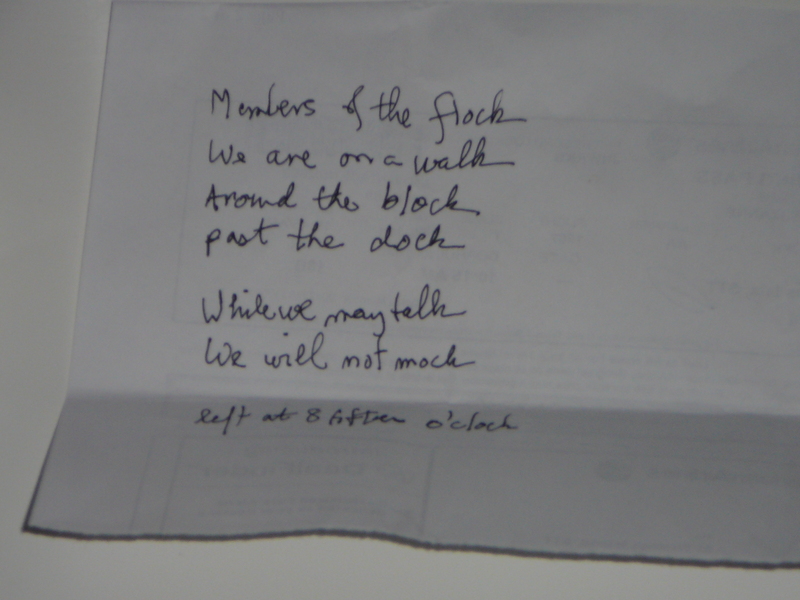 Members of the flock
We are on a walk
Around the block
past the dock
While we may talk
We will not mock
left at 8 fifteen o'clock